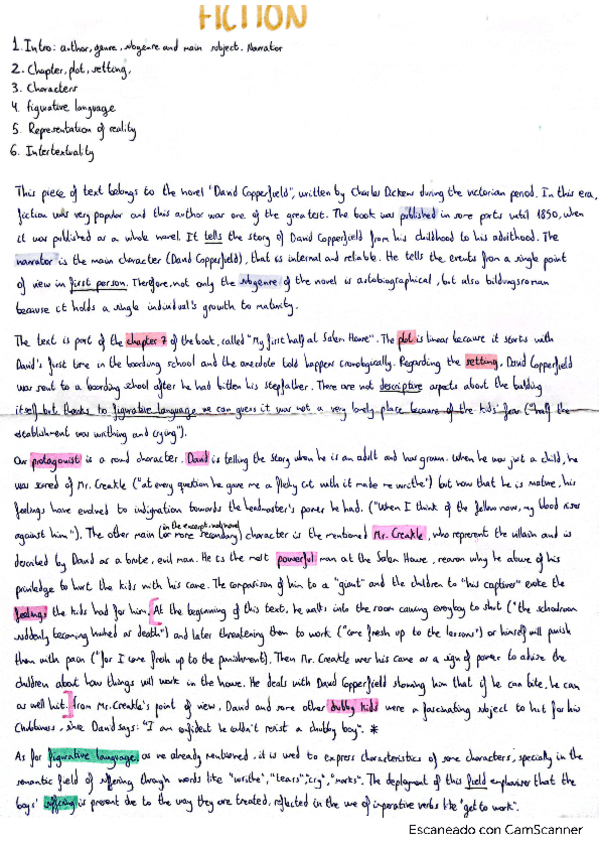 FICTION
1. Intro: author, genre, subgenre and main subject. Narrator
2. Chapter, plot, setting.
3. Characters
4. figurative language
5. Representation of reality
6. Intertextuality
This piece of text belongs to the novel "David Copperfield", written by Charles Dickens during the victorian period. In this era,
fiction was very popular and this author was one of the greatest. The book was published in some parts until 1850, when
it was published as a whole novel. It tells the story of David Copperfield from his childhood to his adulthood. The
narrator is the main character (David Copperfield), that is internal and reliable. He tells the events from a single point
of view in first person. Therefore, not only the subgenre of the novel is autobiographical, but also bildungsroman
because it holds a single individual's growth to maturity.
The text is part of the chapter 7 of the book, called "My first half at Salem House". The plot is linear because it starts with
David's first time in the boarding school and the anecdote told happens cronologically. Regarding the setting, David Copperfield
was sent to a boarding school after he had bitten his stepfather. There are not descriptive aspects about the building
itself but thanks to figurative language we can guess it was not a very lovely place because of the kids' fear ("half the
establishment was writhing and crying").
Our protagonist is a round character. David is telling the story when he is an adult and has grown. When he was just a child, he
was scared of Mr. Creakle ("at every question he gave me a fleshy cut with it made me writhe") but now that he is mature, his
feelings have evolved to indignation towards the headmaster's power he had. ("When I think of the fellow now, my blood rises
against him"). The other main (in the excerpt, not novel) (or more secondary) character is the mentioned Mr. Creakle, who represent the villain and is
described by David as a brute, evil man. He is the most powerful man at the Salem House, reason why he abuse of his
priviledge to hurt the kids with his cane. The comparison of him to a "giant" and the children to "his captives" evoke the
feelings the kids had for him. [At the beginning of this text, he walks into the room causing everyboy to shut ("the schoolroom
suddenly becoming hushed as death") and later threatening them to work ("come fresh up to the lessons") or himself will punish
them with pain ("for I come fresh up to the punishment). Then Mr. Creakle uses his cane as a sign of power to advise the
children about how things will work in the house. He deals with David Copperfield showing him that if he can bite, he can
as well hit.] From Mr. Creakle's point of view, David and some other chubby kids were a fascinating subject to hit for his
chubbiness, since David says: "I am confident he couldn't resist a chubby boy". *
As for figurative language, as we already mentioned, it is used to express characteristics of some characters, specially in the
semantic field of suffering through words like "writhe", "tears", "cry", "marks". The deployment of this field emphasises that the
boys' suffering is present due to the way they are treated, reflected in the use of imperative verbs like "get to work".
Escaneado con CamScanner